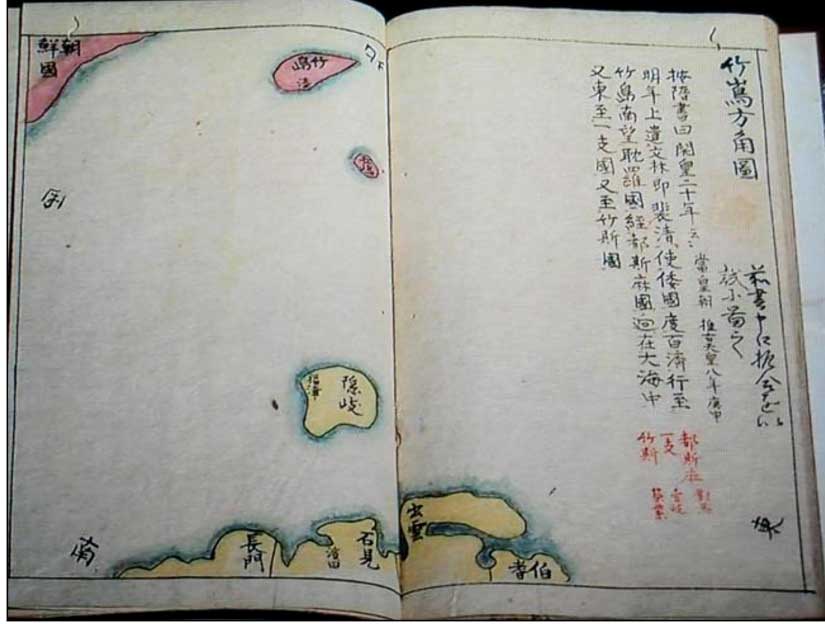 竹嶌方角圖
按隋書曰開皇二十年云云
當皇朝 推古天皇八年庚申
明年上遣文林郎裴清使倭國度百濟行至
竹島南望耽羅國經都斯麻國迥在大海中
又東至一支國又至竹斯國
都斯麻 對馬
一支 壹岐
竹斯 筑紫
朝鮮國
竹嶋
隠岐
福浦
出雲
伯耆
石見
濱田
長門